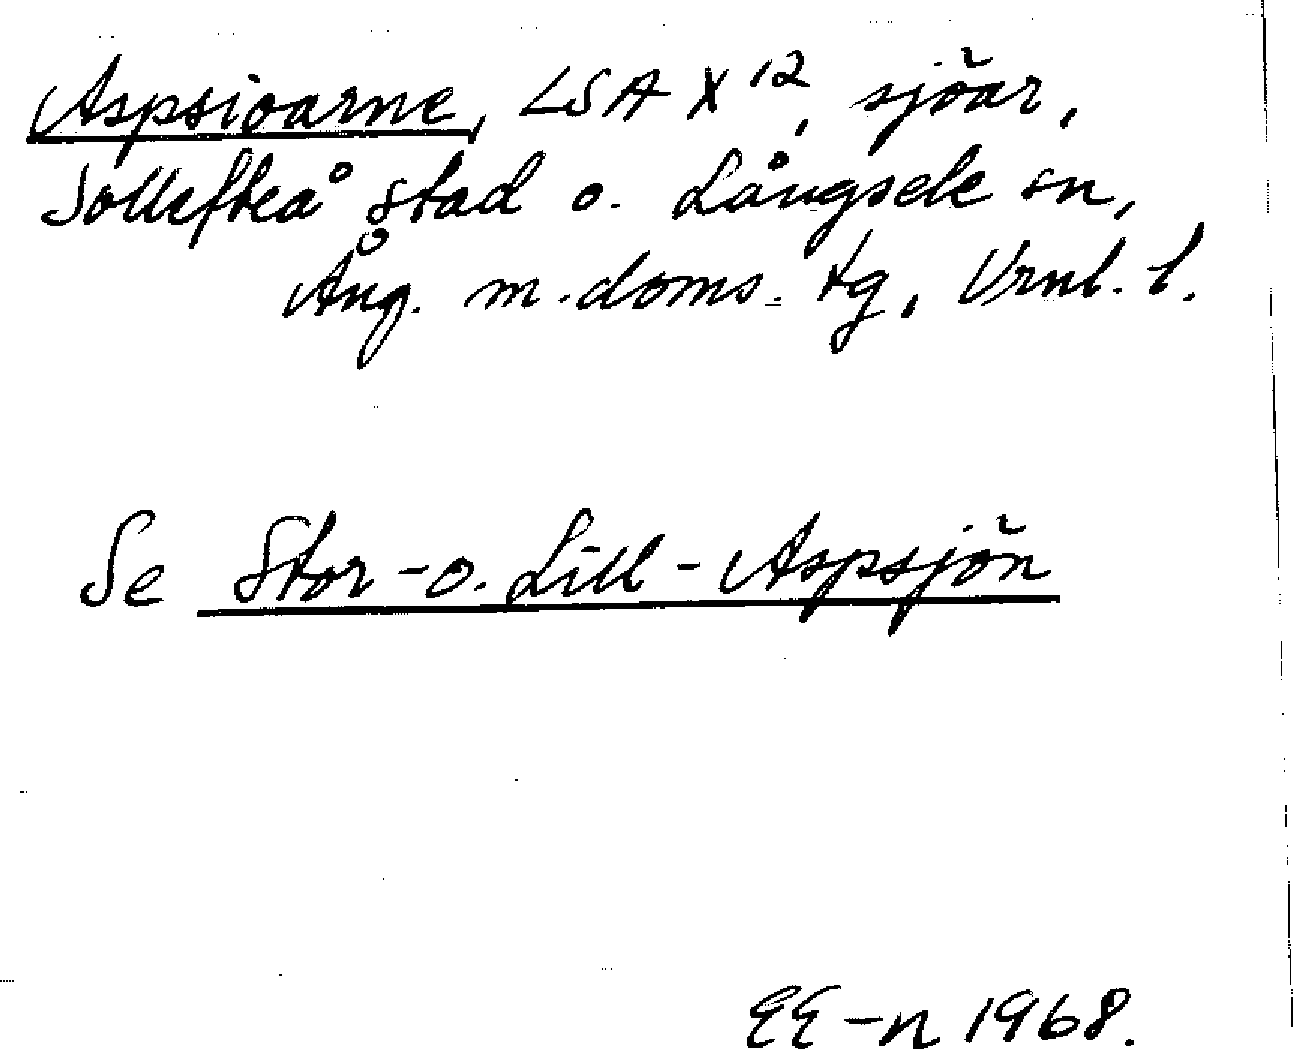 Aspsioarne, LSA X 12, sjöar,
Sollefteå stad o. Långsele sn,
Ång. m. doms. tg, Vrnl. l.
Se Stor- o. Lill-Aspsjön
EE-n 1968.